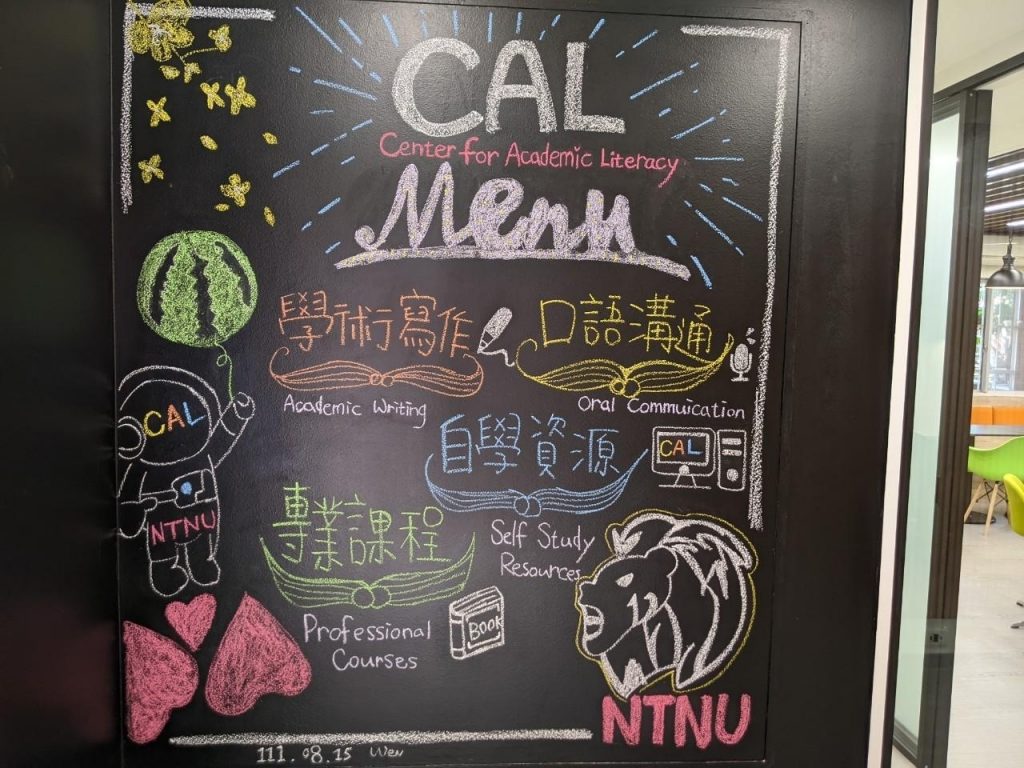 CAL
Center for Academic Literacy
Menu
學術行寫作
Academic Writing
口語溝通
Oral Commuication
CAL
NTNU
自學資源
Self Study
Resources
CAL
專業課程
Professional
Courses
BOOK
NTNU
111.08.15 Wen